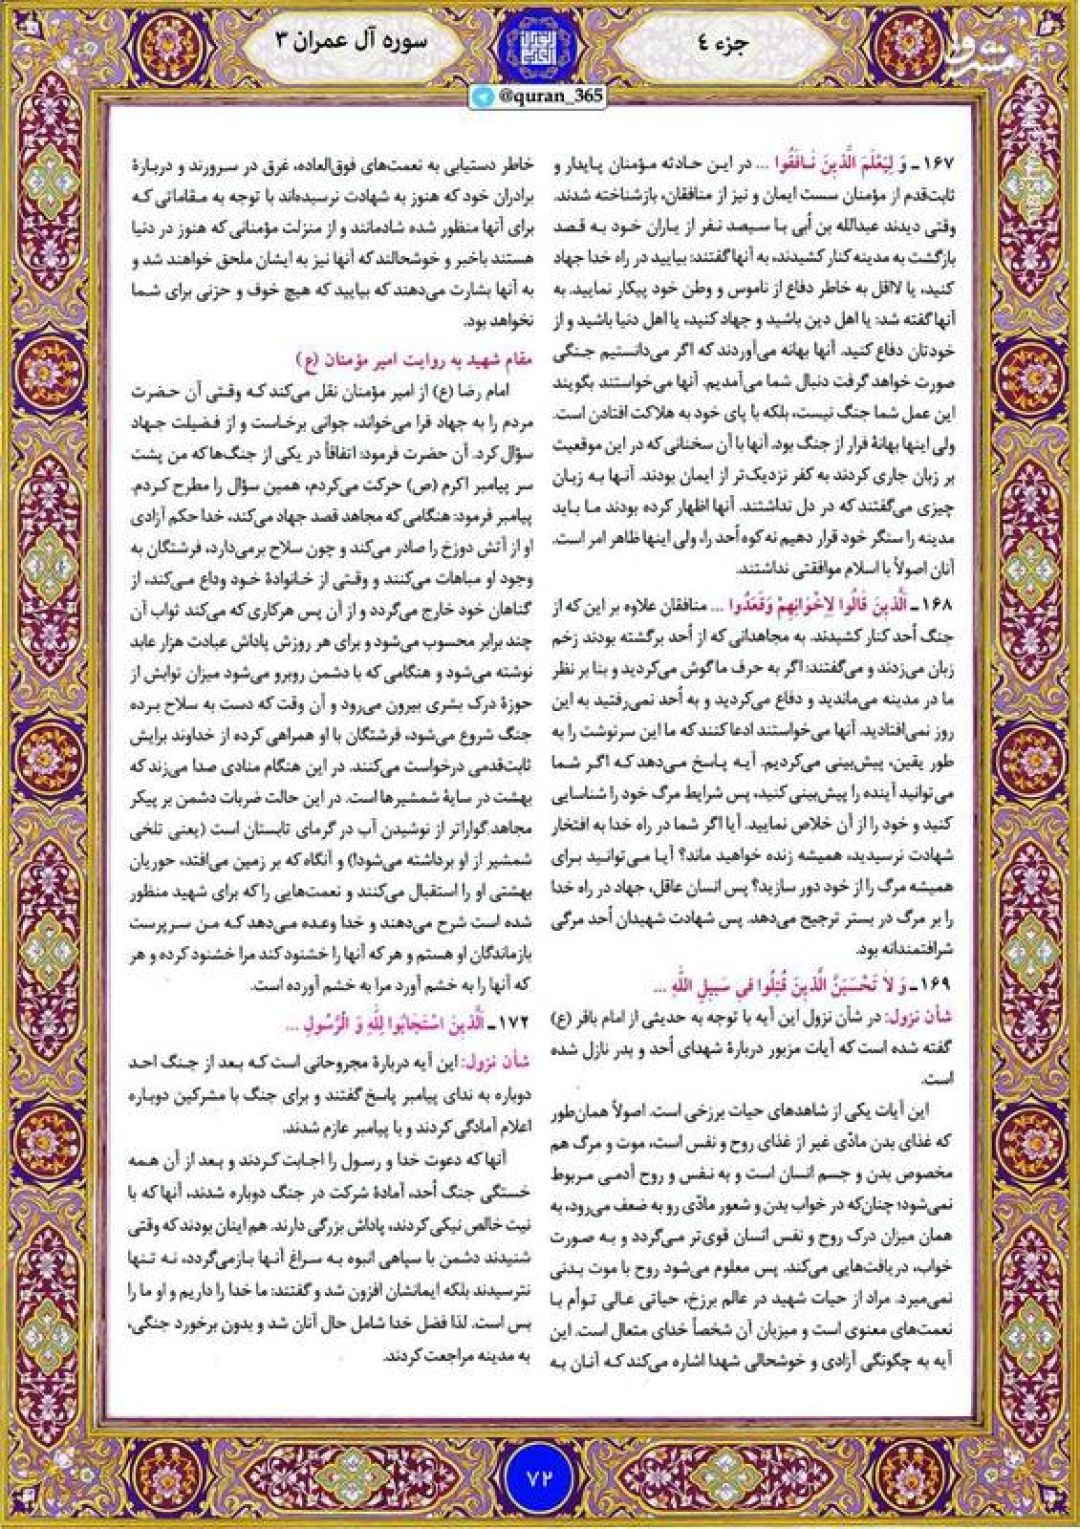 جزء ۴
سوره آل عمران ۳
@quran_365
مشرق
۱۶۷ـ وَ لِیَعْلَمَ الَّذِینَ نٰافَقُوا ... در این حادثه مؤمنان پایدار و
ثابت‌قدم از مؤمنان سست ایمان و نیز از منافقان، بازشناخته شدند.
وقتی دیدند عبدالله بن أبی با سیصد نفر از یاران خود به قصد
بازگشت به مدینه کنار کشیدند، به آنها گفتند: بیایید در راه خدا جهاد
کنید، یا لااقل به خاطر دفاع از ناموس و وطن خود پیکار نمایید. به
آنها گفته شد: یا اهل دین باشید و جهاد کنید، یا اهل دنیا باشید و از
خودتان دفاع کنید. آنها بهانه می‌آوردند که اگر می‌دانستیم جنگی
صورت خواهد گرفت دنبال شما می‌آمدیم. آنها می‌خواستند بگویند
این عمل شما جنگ نیست، بلکه با پای خود به هلاکت افتادن است.
ولی اینها بهانهٔ فرار از جنگ بود. آنها با آن سخنانی که در این موقعیت
بر زبان جاری کردند به کفر نزدیک‌تر از ایمان بودند. آنها به زبان
چیزی می‌گفتند که در دل نداشتند. آنها اظهار کرده بودند ما باید
مدینه را سنگر خود قرار دهیم نه کوه اُحد را، ولی اینها ظاهر امر است.
آنان اصولاً با اسلام موافقتی نداشتند.
۱۶۸ـ اَلَّذِینَ قٰالُوا لِاِخْوٰانِهِمْ وَقَعَدُوا ... منافقان علاوه بر این که از
جنگ اُحد کنار کشیدند. به مجاهدانی که از اُحد برگشته بودند زخم
زبان می‌زدند و می‌گفتند: اگر به حرف ما گوش می‌کردید و بنا بر نظر
ما در مدینه می‌ماندید و دفاع می‌کردید و به اُحد نمی‌رفتید به این
روز نمی‌افتادید. آنها می‌خواستند ادعا کنند که ما این سرنوشت را به
طور یقین، پیش‌بینی می‌کردیم. آیه پاسخ می‌دهد که اگر شما
می‌توانید آینده را پیش‌بینی کنید، پس شرایط مرگ خود را شناسایی
کنید و خود را از آن خلاص نمایید. آیا اگر شما در راه خدا به افتخار
شهادت نرسیدید، همیشه زنده خواهید ماند؟ آیا می‌توانید برای
همیشه مرگ را از خود دور سازید؟ پس انسان عاقل، جهاد در راه خدا
را بر مرگ در بستر ترجیح می‌دهد. پس شهادت شهیدان اُحد مرگی
شرافتمندانه بود.
۱۶۹ـ وَ لاٰ تَحْسَبَنَّ الَّذِینَ قُتِلُوا فِی سَبِیلِ اللّٰهِ ...
شأن نزول: در شأن نزول این آیه با توجه به حدیثی از امام باقر (ع)
گفته شده است که آیات مزبور دربارهٔ شهدای اُحد و بدر نازل شده
است.
این آیات یکی از شاهدهای حیات برزخی است. اصولاً همان‌طور
که غذای بدن مادّی غیر از غذای روح و نفس است، موت و مرگ هم
مخصوص بدن و جسم انسان است و به نفس و روح آدمی مربوط
نمی‌شود؛ چنان‌که در خواب بدن و شعور مادّی رو به ضعف می‌رود، به
همان میزان درک روح و نفس انسان قوی‌تر می‌گردد و به صورت
خواب، دریافت‌هایی می‌کند. پس معلوم می‌شود روح با موت بدنی
نمی‌میرد. مراد از حیات شهید در عالم برزخ، حیاتی عالی توأم با
نعمت‌های معنوی است و میزبان آن شخصاً خدای متعال است. این
آیه به چگونگی آزادی و خوشحالی شهدا اشاره می‌کند که آنان به
خاطر دستیابی به نعمت‌های فوق‌العاده، غرق در سرورند و دربارهٔ
برادران خود که هنوز به شهادت نرسیده‌اند با توجه به مقاماتی که
برای آنها منظور شده شادمانند و از منزلت مؤمنانی که هنوز در دنیا
هستند باخبر و خوشحالند که آنها نیز به ایشان ملحق خواهند شد و
به آنها بشارت می‌دهند که بیایید که هیچ خوف و حزنی برای شما
نخواهد بود.
مقام شهید به روایت امیر مؤمنان (ع)
امام رضا (ع) از امیر مؤمنان نقل می‌کند که وقتی آن حضرت
مردم را به جهاد فرا می‌خواند، جوانی برخاست و از فضیلت جهاد
سؤال کرد. آن حضرت فرمود: اتفاقاً در یکی از جنگ‌ها که من پشت
سر پیامبر اکرم (ص) حرکت می‌کردم، همین سؤال را مطرح کردم.
پیامبر فرمود: هنگامی که مجاهد قصد جهاد می‌کند، خدا حکم آزادی
او از آتش دوزخ را صادر می‌کند و چون سلاح برمی‌دارد، فرشتگان به
وجود او مباهات می‌کنند و وقتی از خانوادهٔ خود وداع می‌کند، از
گناهان خود خارج می‌گردد و از آن پس هرکاری که می‌کند ثواب آن
چند برابر محسوب می‌شود و برای هر روزش پاداش عبادت هزار عابد
نوشته می‌شود و هنگامی که با دشمن روبرو می‌شود میزان ثوابش از
حوزهٔ درک بشری بیرون می‌رود و آن وقت که دست به سلاح برده
جنگ شروع می‌شود، فرشتگان با او همراهی کرده از خداوند برایش
ثابت‌قدمی درخواست می‌کنند. در این هنگام منادی صدا می‌زند که
بهشت در سایهٔ شمشیرها است. در این حالت ضربات دشمن بر پیکر
مجاهد گواراتر از نوشیدن آب در گرمای تابستان است (یعنی تلخی
شمشیر از او برداشته می‌شود!) و آنگاه که بر زمین می‌افتد، حوریان
بهشتی او را استقبال می‌کنند و نعمت‌هایی را که برای شهید منظور
شده است شرح می‌دهند و خدا وعده می‌دهد که من سرپرست
بازماندگان او هستم و هر که آنها را خشنود کند مرا خشنود کرده و هر
که آنها را به خشم آورد مرا به خشم آورده است.
۱۷۲ـ اَلَّذِینَ اسْتَجٰابُوا لِلّٰهِ وَ الرَّسُولِ ...
شأن نزول: این آیه دربارهٔ مجروحانی است که بعد از جنگ احد
دوباره به ندای پیامبر پاسخ گفتند و برای جنگ با مشرکین دوباره
اعلام آمادگی کردند و با پیامبر عازم شدند.
آنها که دعوت خدا و رسول را اجابت کردند و بعد از آن همه
خستگی جنگ اُحد، آمادهٔ شرکت در جنگ دوباره شدند، آنها که با
نیت خالص نیکی کردند، پاداش بزرگی دارند. هم اینان بودند که وقتی
شنیدند دشمن با سپاهی انبوه به سراغ آنها بازمی‌گردد، نه تنها
نترسیدند بلکه ایمانشان افزون شد و گفتند: ما خدا را داریم و او ما را
بس است. لذا فضل خدا شامل حال آنان شد و بدون برخورد جنگی،
به مدینه مراجعت کردند.
۷۲